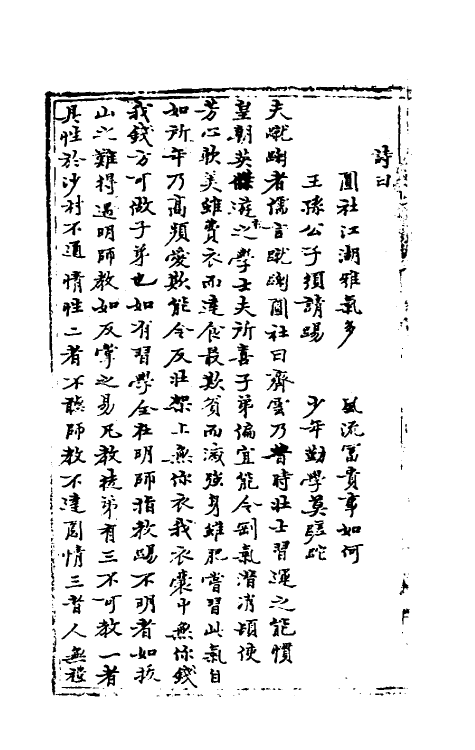 詩曰
圓社江湖雅氣多　風流富貴事如何
王孫公子須請踢　少年勤學莫蹉跎
夫蹴踘者儒言蹴踘圓社曰齊雲乃昔時壯士習運之能慣
皇朝英傑遊之學士夫所喜子弟偏宜能令剛氣潛消頓使
芳心歡美雖費衣而達食最欺貧而滅強身雖肥嘗習此氣自
如所年乃高頻愛欺能令反壯架上無你衣我衣囊中無你錢
我錢方可做子弟也如有習學全在明師指教踢不明者如拔
山之難得遇明師教如反掌之易凡教徒弟有三不可教一者
其性於沙村不通情性二者不聽師教不達圓情三者人無禮